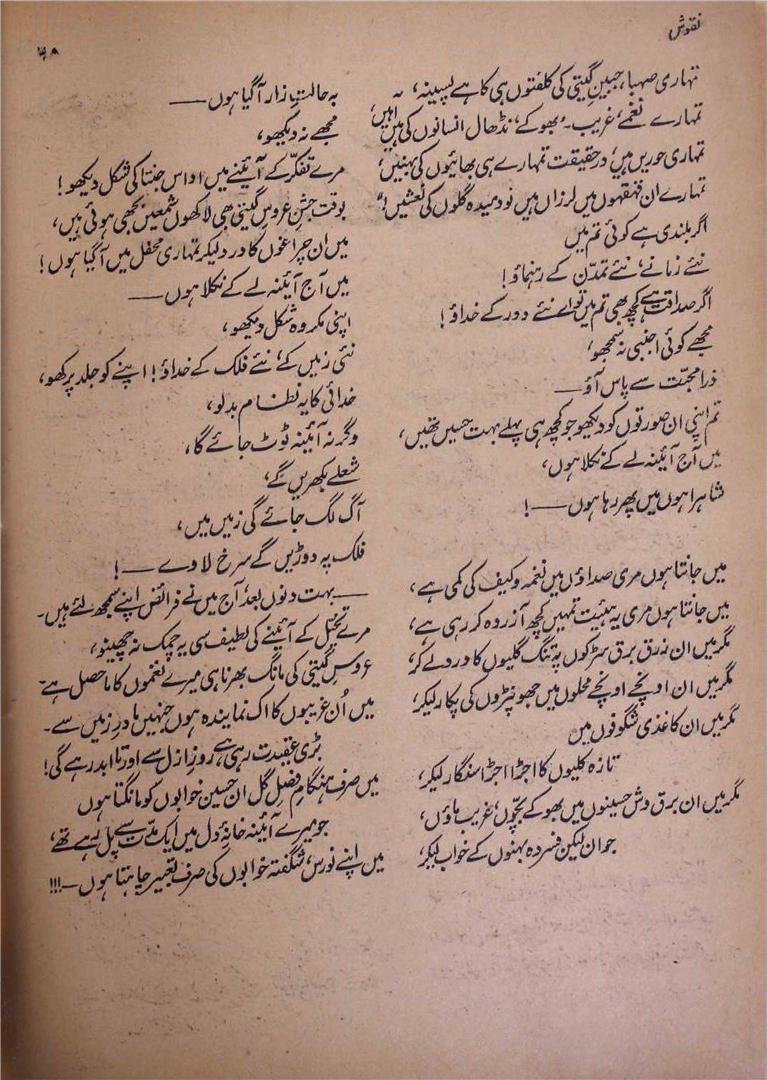 نقوش
۳۸
تمہاری صہبا، جبینِ گیتی کی کلفتوں ہی کا ہے پسینہ،
تمہارے نغمے، غریب۔ بھوکے، نڈھال انسانوں کی ہیں آہیں،
تمہاری حوریں ہیں، درحقیقت تمہارے ہی بھائیوں کی بہنیں،
تمہارے ان قہقہوں میں لرزاں ہیں نودمیدہ گلوں کی نعشیں!"
اگر بلندی ہے کوئی تم میں
نئے زمانے، نئے تمدّن کے رہنماؤ!
اگر صداقت ہے کچھ بھی تم میں تو اے نئے دور کے خداؤ!
مجھے کوئی اجنبی نہ سمجھو،
ذرا محبّت سے پاس آؤ——
تم اپنی ان صورتوں کو دیکھو جو کچھ ہی پہلے بہت حسیں تھیں،
میں آج آئینہ لے کے نکلا ہوں،
شاہراہوں میں پھر رہا ہوں——!
میں جانتا ہوں مری صداؤں میں نغمہ و کیف کی کمی ہے،
میں جانتا ہوں مری یہ ہیئت تمہیں کچھ آزردہ کر رہی ہے،
مگر میں ان زرق برق سڑکوں پہ تنگ گلیوں کا درد لے کر،
مگر میں ان اونچے اونچے محلوں میں جھونپڑوں کی پکار لیکر،
مگر میں ان کاغذی شگوفوں میں
تازہ کلیوں کا اجڑا اجڑا سنگار لیکر،
مگر میں ان برق وش حسینوں میں بھوکے بچّوں، غریب ماؤں،
جوان لیکن فسردہ بہنوں کے خواب لیکر،
بہ حالتِ زار آ گیا ہوں——
مجھے نہ دیکھو،
مرے تفکّر کے آئینے میں اداس جنتا کی شکل دیکھو!
بوقتِ جشنِ عروسِ گیتی جی لاکھوں شمعیں بجھی ہوئی ہیں،
میں ان چراغوں کا درد لیکر تمہاری محفل میں آ گیا ہوں!
میں آج آئینہ لے کے نکلا ہوں——
اپنی مکروہ شکل دیکھو،
نئی زمیں کے، نئے فلک کے خداؤ! اپنے کو جلد پرکھو،
خدائی کا یہ نظام بدلو،
وگرنہ آئینہ ٹوٹ جائے گا،
شعلے بکھریں گے،
آگ لگ جائے گی زمیں میں،
فلک پہ دوڑیں گے سرخ لاوے——!
——بہت دنوں بعد، آج میں نے فرائض اپنے سمجھ لئے ہیں۔
مرے تخیّل کے آئینے کی لطیف سی یہ چمک نہ چھینو،
عروسِ گیتی کی مانگ بھرنا ہی میرے نغموں کا ماحصل ہے۔
میں اُن غریبوں کا اک نمایندہ ہوں جنہیں مادرِ زمیں سے۔
بڑی عقیدت رہی ہے روزِ ازل سے اور تا ابد رہے گی!
میں صرف ہنگامِ فصلِ گل ان حسین خوابوں کو مانگتا ہوں
جو میرے آئینہ خانۂ دل میں ایک مدّت سے پل رہے تھے،
میں اپنے نورس، شگفتہ خوابوں کی صرف تعبیر چاہتا ہوں—!!!